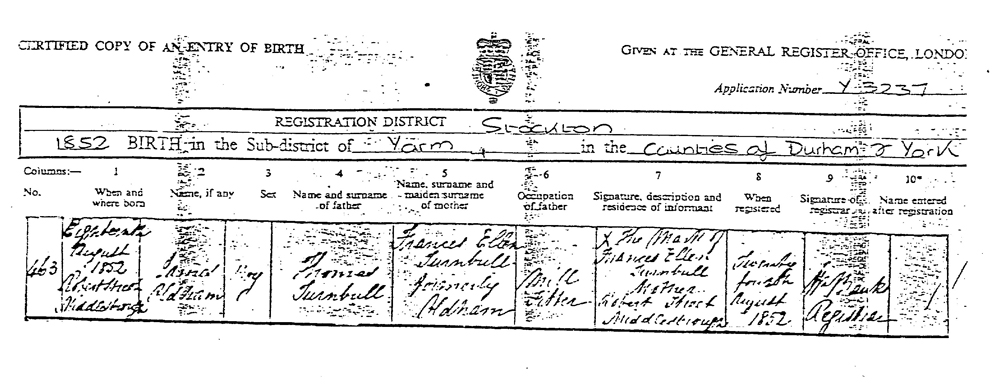 CERTIFIED COPY OF AN ENTRY OF BIRTH
GIVEN AT THE GENERAL REGISTER OFFICE, LONDO
Application Number Y 3237
REGISTRATION DISTRICT Stockton
1852 BIRTH in the Sub-district of Yarm in the Counties of Durham & York
Columns:— 1 2 3 4 5 6 7 8 9 10*
No. When and where born Name, if any Sex Name and surname of father Name, surname and maiden surname of mother Occupation of father Signature, description and residence of informant When registered Signature of registrar Name entered after registration
463
Eighteenth
August
1852
Robert Street
Middlesbrough
Aldham
Boy
Thomas
Turnbull
Frances Ellen
Turnbull
formerly
Aldham
X The Mark of
Frances Ellen
Turnbull
Mother
Robert Street
Middlesbrough
Twenty
fourth
August
1852
Registrar